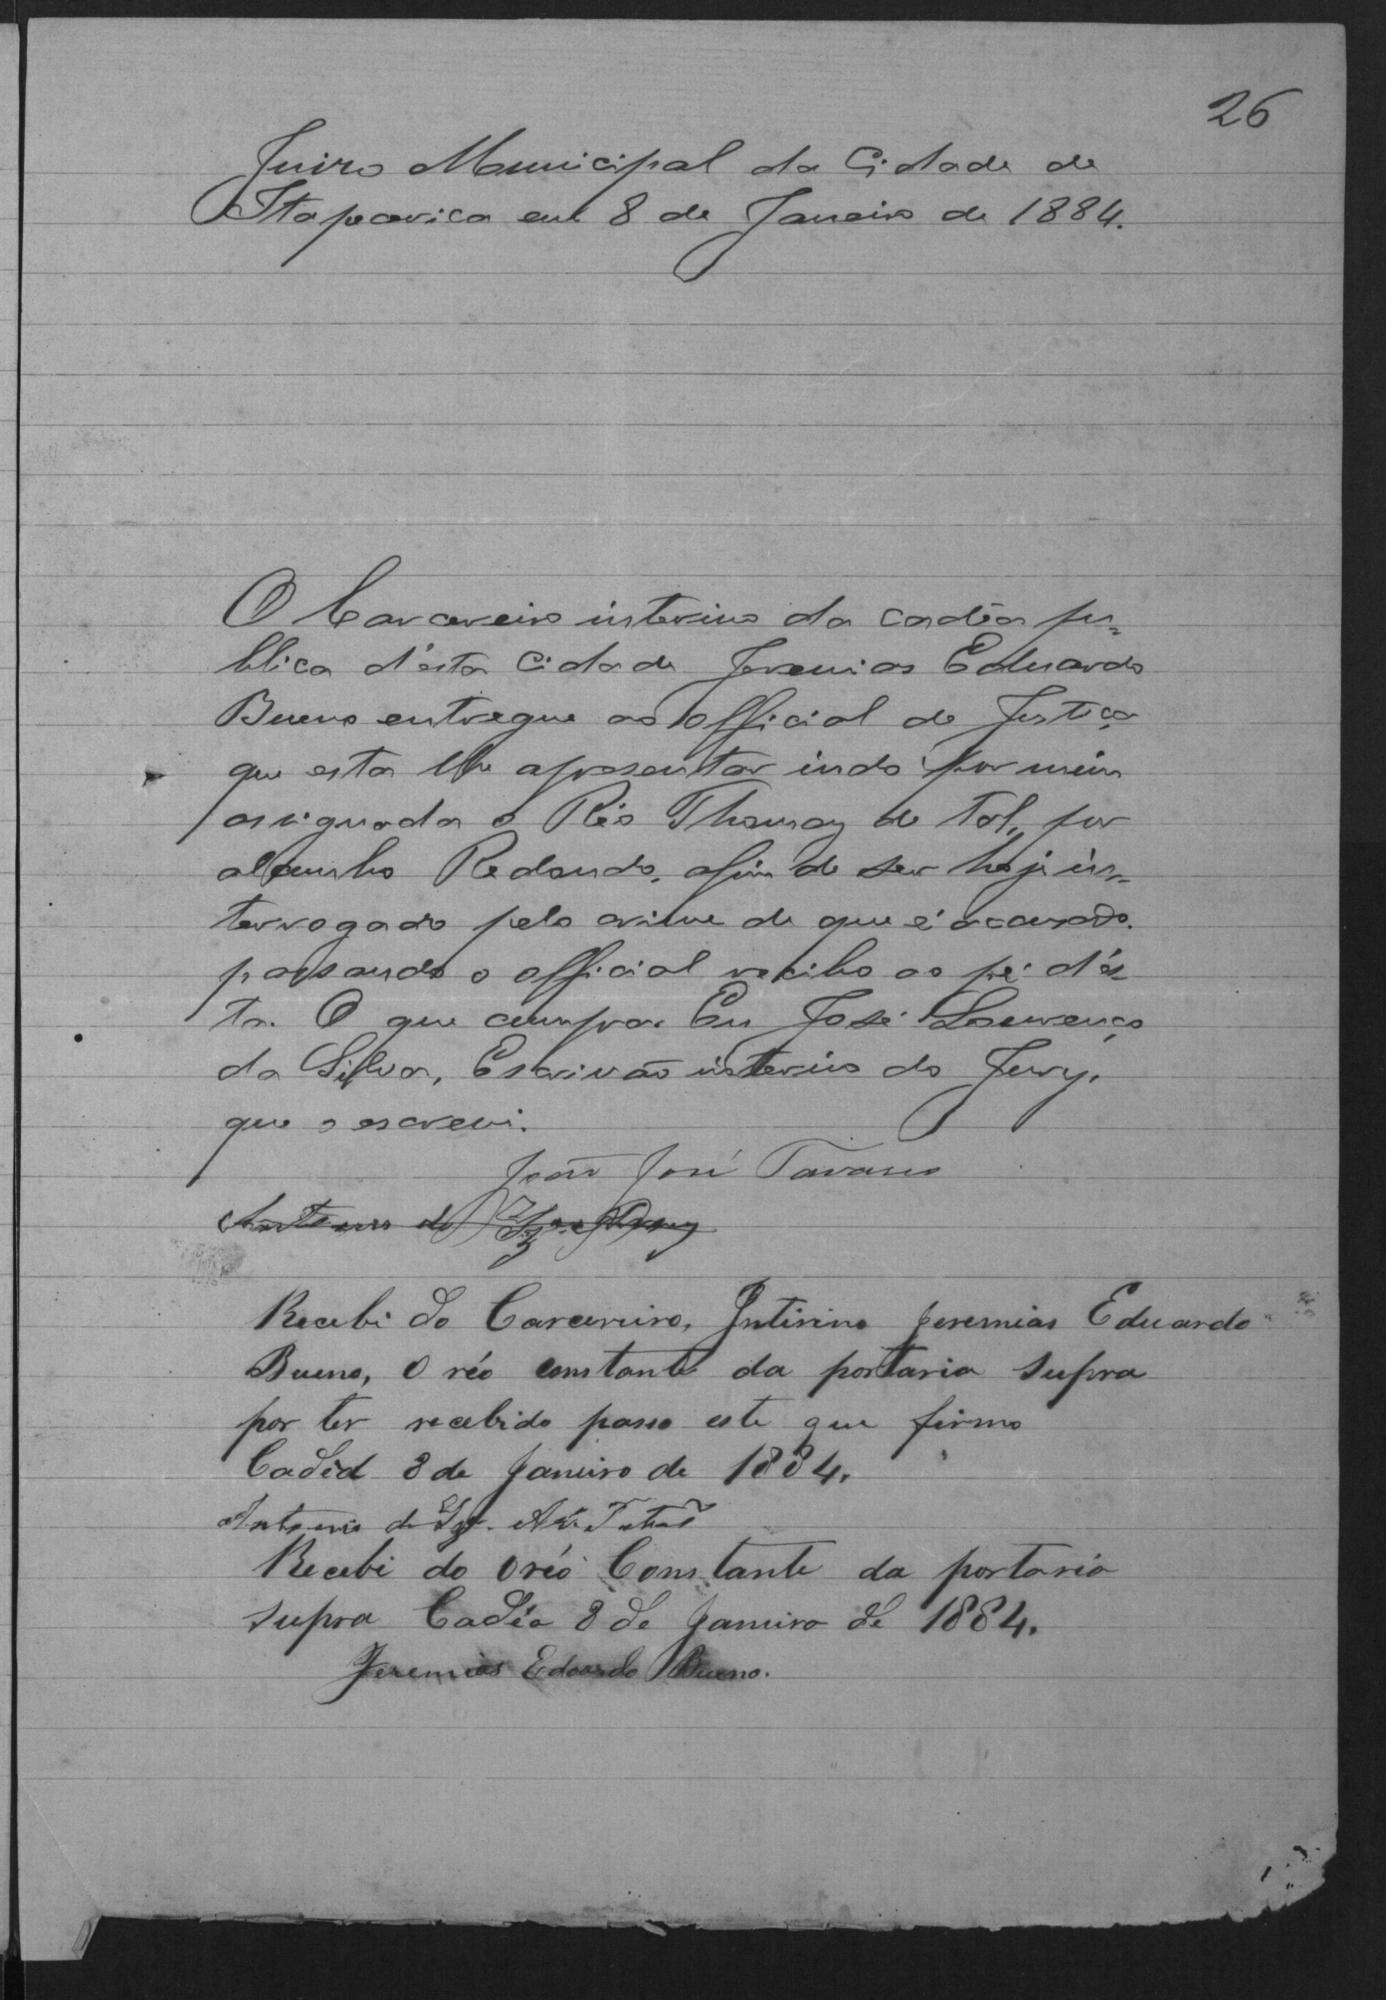 26
Juizo Municipal da Cidade de
Itapecerica em 8 de Janeiro de 1884.
O Carcereiro interino da cadêa pu-
blica d'esta Cidade Jeremias Eduardo
Bueno entregue ao official de Justiça
que esta lhe apresentar indo por mim
assignada o Réo Thomaz de tal, por
alcunho Redondo, afim de ser hoje in-
terrogado pelo crime de que é accusado.
passando o official recibo ao pé d'es-
ta. O que cumpra. Eu José Lourenço
da Silva, Escrivão interino do Jury,
que o escrevi.
João José Tavares
Antonio de
Recebi do Carcereiro, Intirino Jeremias Eduardo
Bueno, O réo constante da portaria supra
por ter recebido passo este que firmo
Cadêa 8 de Janeiro de 1884.
Antonio de
Recebi do O réo Constante da portaria
supra Cadêa 8 de Janeiro de 1884.
Jeremias Edoardo Bueno.